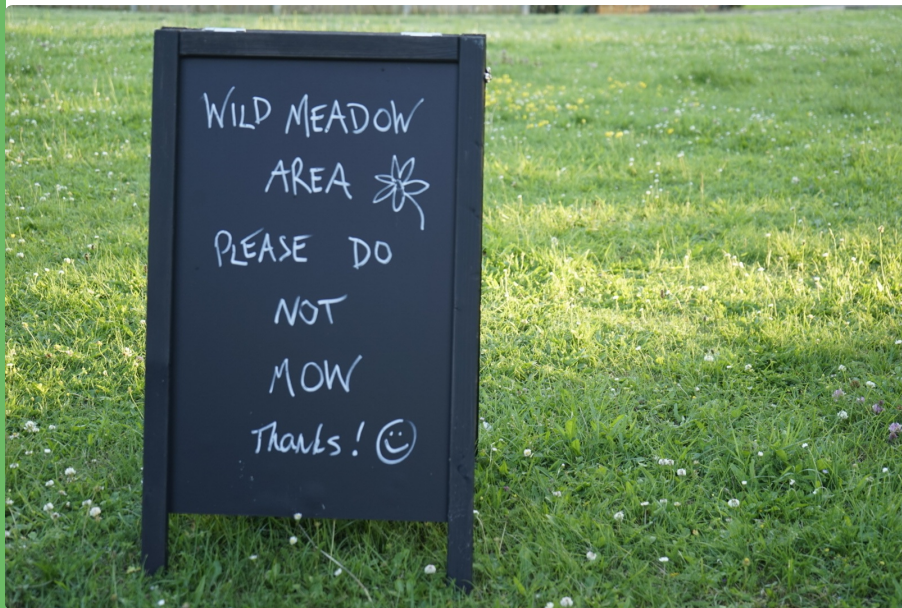 WILD MEADOW
AREA
PLEASE DO
NOT
MOW
Thanks!